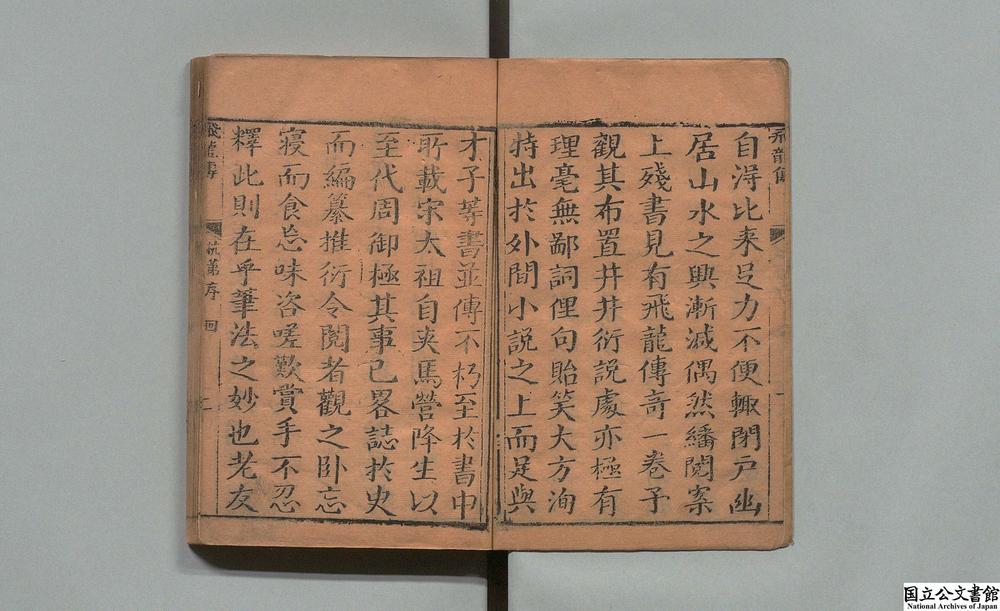 飛龍傳
自淂比来足力不便輙閉户幽
居山水之興漸减偶然繙閱案
上殘書見有飛龍傳竒一巻予
觀其布置井井衍說處亦極有
理毫無鄙詞俚句貽笑大方洵
特出扵外間小說之上而足與
才子䓁書並傳不朽至扵書中
所載宋太祖自夾馬營降生以
至代周御極其事已畧誌扵史
而編纂推衍令閱者觀之卧忘
寝而食忘味咨嗟歎賞手不忍
釋此則在乎筆法之妙也老友
飛龍傳
序
回
国立公文書館
National Archives of Japan